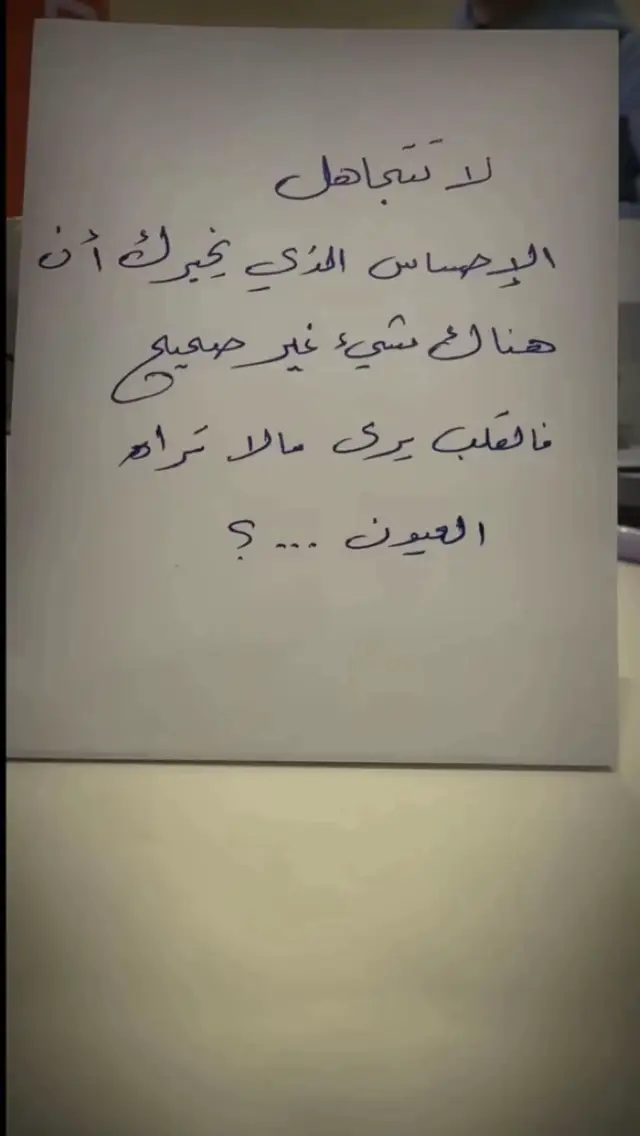 لا تتجاهل
الإحساس الذي يخبرك أن
هناك شيء غير صحيح
فالقلب يرى مالا تراه
العيون ... ؟